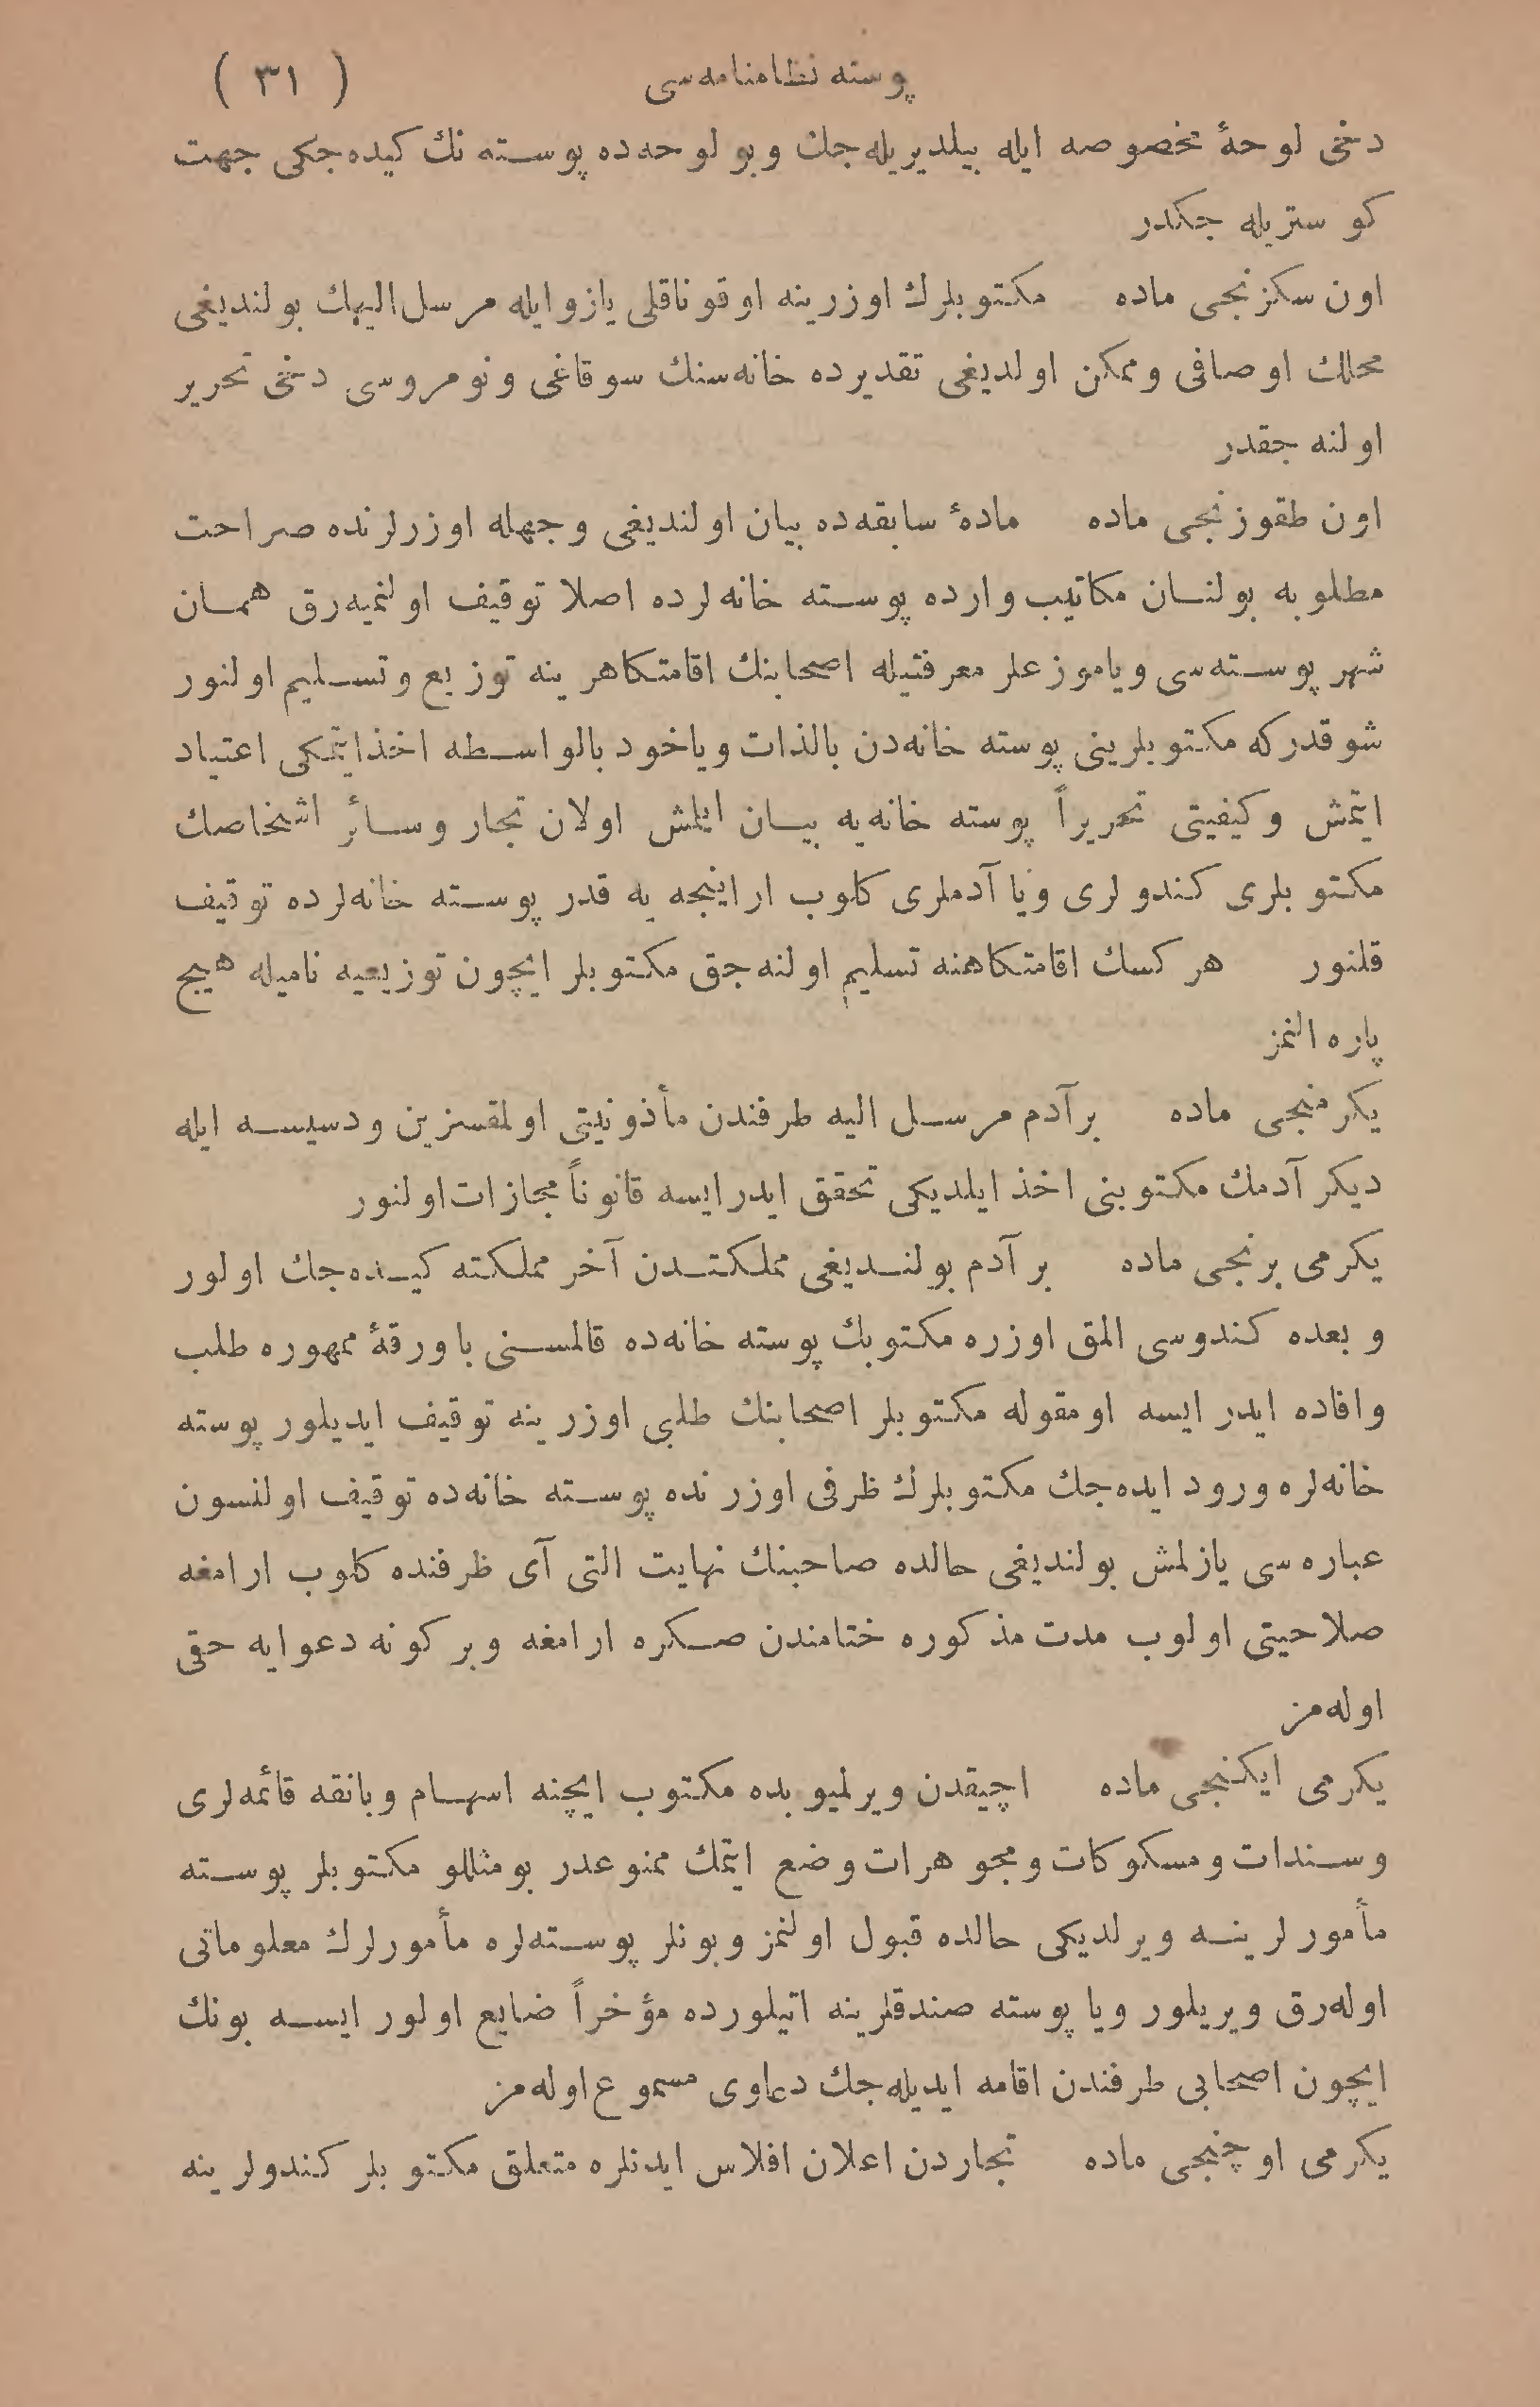 پوسته نظامنامه‌سی ( ٣١ )
دخی لوحهٔ مخصوصه ایله بیلدیریله‌جك وبو لوحه‌ده پوسته نك كیده‌جكی جهت
كوستریله جكدر
اون سكزنجی ماده مكتوبلرك اوزرینه اوقوناقلی یازو ایله مرسل‌الیهك بولندیغی
محللك اوصافی وممكن اولدیغی تقدیرده خانه‌سنك سوقاغی ونومروسی دخی تحریر
اولنه جقدر
اون طقوزنجی ماده مادهٔ سابقه‌ده بیان اولندیغی وجهله اوزرلرنده صراحت
مطلوبه بولنان مكاتیب وارده پوسته خانه‌لرده اصلا توقیف اولنمیه‌رق همان
شهر پوسته‌سی ویا موزعلر معرفتیله اصحابنك اقامتكاهرینه توزیع وتسلیم اولنور
شو قدركه مكتوبلرینی پوسته خانه‌دن بالذات ویاخود بالواسطه اخذایتمكی اعتیاد
ایتمش وكیفیتی تحریراً پوسته خانه‌یه بیان ایلمش اولان تجار وسائر اشخاصك
مكتوبلری كندولری ویا آدملری كلوب اراینجه یه قدر پوسته خانه‌لرده توقیف
قلنور هر كسك اقامتكاهنه تسلیم اولنه‌جق مكتوبلر ایچون توزیعیه نامیله هیچ
پاره النمز
یكرمنجی ماده برآدم مرسل الیه طرفندن مأذونیتی اولمقسزین ودسیسه ایله
دیكر آدمك مكتوبنی اخذ ایلدیكی تحقق ایدرایسه قانوناً مجازات‌اولنور
یكرمی برنجی ماده بر آدم بولندیغی مملكتدن آخر مملكته كیده‌جك اولور
وبعده كندوسی المق اوزره مكتوبك پوسته خانه‌ده قالمسنی باورقهٔ ممهوره طلب
وافاده ایدر ایسه اومقوله مكتوبلر اصحابنك طلبی اوزرینه توقیف ایدیلور پوسته
خانه‌لره ورود ایده‌جك مكتوبلرك ظرفی اوزرنده پوسته خانه‌ده توقیف اولنسون
عباره‌سی یازلمش بولندیغی حالده صاحبنك نهایت التی آی ظرفنده كلوب ارامغه
صلاحیتی اولوب مدت مذكوره ختامندن صكره ارامغه وبر كونه دعوایه حقی
اوله‌مز
یكرمی ایكنجی ماده اچیقدن ویرلمیوبده مكتوب ایچنه اسهام وبانقه قائمه‌لری
وسندات ومسكوكات ومجوهرات وضع ایتمك ممنوعدر بومثللو مكتوبلر پوسته
مأمورلرینه ویرلدیكی حالده قبول اولنمز وبونلر پوسته‌لره مأمورلرك معلوماتی
اوله‌رق ویریلور ویا پوسته صندقلرینه اتیلورده مؤخراً ضایع اولور ایسه بونك
ایچون اصحابی طرفندن اقامه ایدیله‌جك دعاوی مسموع‌اوله‌مز
یكرمی اوچنجی ماده تجاردن اعلان افلاس ایدنلره متعلق مكتوبلر كندولرینه